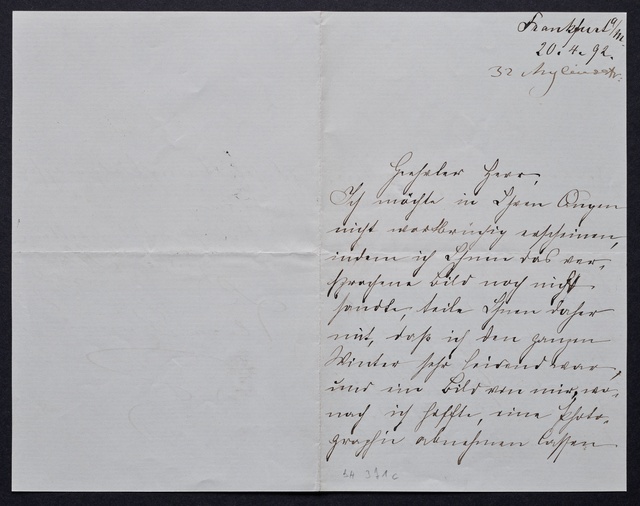 Frankfurt a/M.
20. 4. 92.
32 Myliusstr.
Geehrter Herr,
Ich möchte in Ihren Augen
nicht wortbrüchig erscheinen,
indem ich Ihnen das ver-
sprochene Bild noch nicht
sandte, teile Ihnen daher
mit, daß ich den ganzen
Winter sehr leidend war
und ein Bild von mir, wo-
nach ich hoffte, eine Photo-
graphie abnehmen lassen